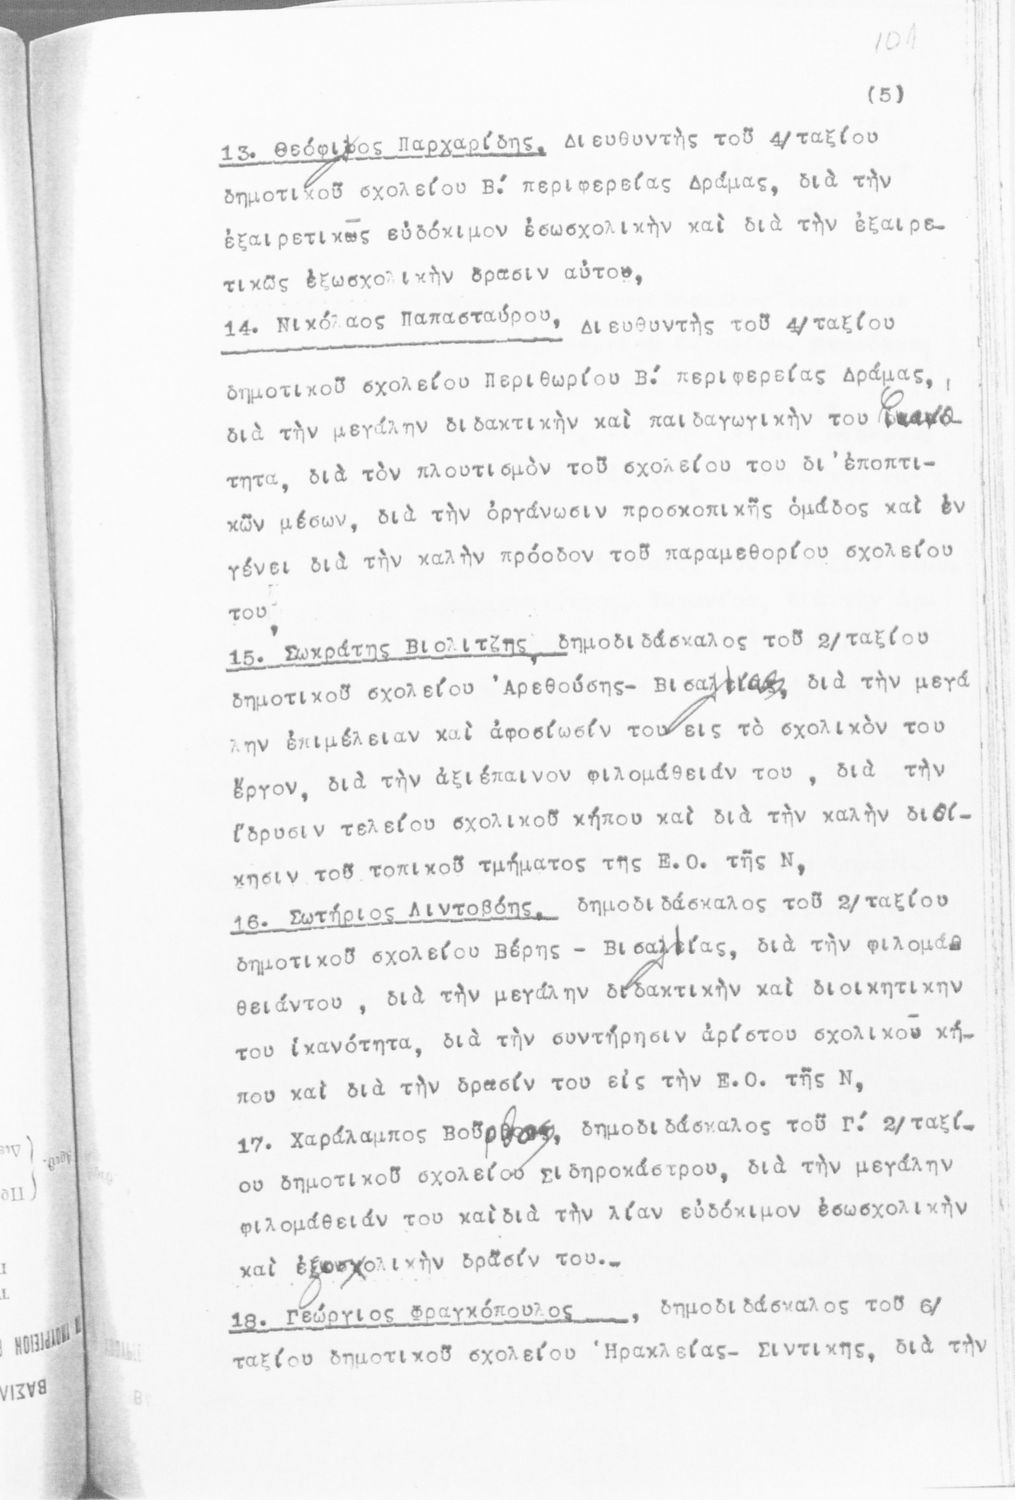 101
(5)
13. Θεόφιλος Παρχαρίδης, Διευθυντὴς τοῦ 4/ταξίου
δημοτικοῦ σχολείου Β΄ περιφερείας Δράμας, διὰ τὴν
ἐξαιρετικῶς εὐδόκιμον ἐσωσχολικὴν καὶ διὰ τὴν ἐξαιρε-
τικῶς ἐξωσχολικὴν δρασιν αὐτου,
14. Νικόλαος Παπασταύρου, Διευθυντὴς τοῦ 4/ταξίου
δημοτικοῦ σχολείου Περιθωρίου Β΄ περιφερείας Δράμας,
διὰ τὴν μεγάλην διδακτικὴν καὶ παιδαγωγικὴν του ἱκανό-
τητα, διὰ τὸν πλουτισμὸν τοῦ σχολείου του δι᾽ἐποπτι-
κῶν μέσων, διὰ τὴν ὀργάνωσιν προσκοπικῆς ὁμάδος καὶ ἐν
γένει διὰ τὴν καλὴν πρόοδον τοῦ παραμεθορίου σχολείου
του,
15. Σωκράτης Βιολιτζῆς, δημοδιδάσκαλος τοῦ 2/ταξίου
δημοτικοῦ σχολείου ᾽Αρεθούσης- Βισαλτίας, διὰ τὴν μεγά
λην ἐπιμέλειαν καὶ ἀφοσίωσίν του εις τὸ σχολικὸν του
ἔργον, διὰ τὴν ἀξιέπαινον φιλομάθειάν του , διὰ τὴν
ἵδρυσιν τελείου σχολικοῦ κήπου καὶ διὰ τὴν καλὴν διοί-
κησιν τοῦ τοπικοῦ τμήματος της Ε.Ο. τῆς Ν,
16. Σωτήριος Λιντοβόης, δημοδιδάσκαλος τοῦ 2/ταξίου
δημοτικοῦ σχολείου Βέρης - Βισαλτίας, διὰ τὴν φιλομά-
θειάντου , διὰ τὴν μεγάλην διδακτικὴν καὶ διοικητικην
του ἱκανότητα, διὰ τὴν συντήρησιν ἀρίστου σχολικοῦ κή-
που καὶ διὰ τὴν δρασίν του εἰς τὴν Ε.Ο. τῆς Ν,
17. Χαράλαμπος δημοδιδάσκαλος τοῦ Γ΄ 2/ταξί-
ου δημοτικοῦ σχολείου Σιδηροκάστρου, διὰ τὴν μεγάλην
φιλομάθειάν του καὶδιὰ τὴν λίαν εὐδόκιμον ἐσωσχολικὴν
καὶ ἐξωσχολικὴν δρᾶσίν του.-
18. Γεώργιος Φραγκόπουλος , δημοδιδάσκαλος τοῦ 6/
ταξίου δημοτικοῦ σχολείου ῾Ηρακλείας- Σιντικης, διὰ τὴν